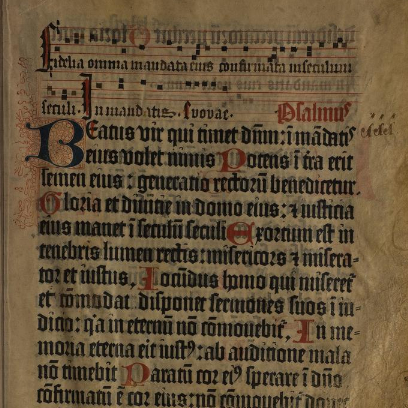 Fidelia omnia mandata eius confirmata in seculum
seculi. In mandatis. Euouae. Psalmus
Beatus vir qui timet dñm: ĩ mãdatis
eius volet nimis Potens ĩ tra erit
semen eius: generatio rectorũ benedicetur.
Gloria et diuitie in domo eius: ⁊ iusticia
eius manet ĩ seculũ seculi Exortum est in
tenebris lumen rectis: misericors ⁊ misera-
tor et iustus. Jocũdus homo qui miseret
et cõmodat disponet sermones suos ĩ iu-
dicio: q̃a in eternũ nõ cõmouebit̃. In me-
moria eterna erit iustꝰ: ab auditione mala
nõ timebit Paratũ cor eiꝰ sperare ĩ dño
cõfirmatũ est cor eius: nõ cõmouebit̃ donec